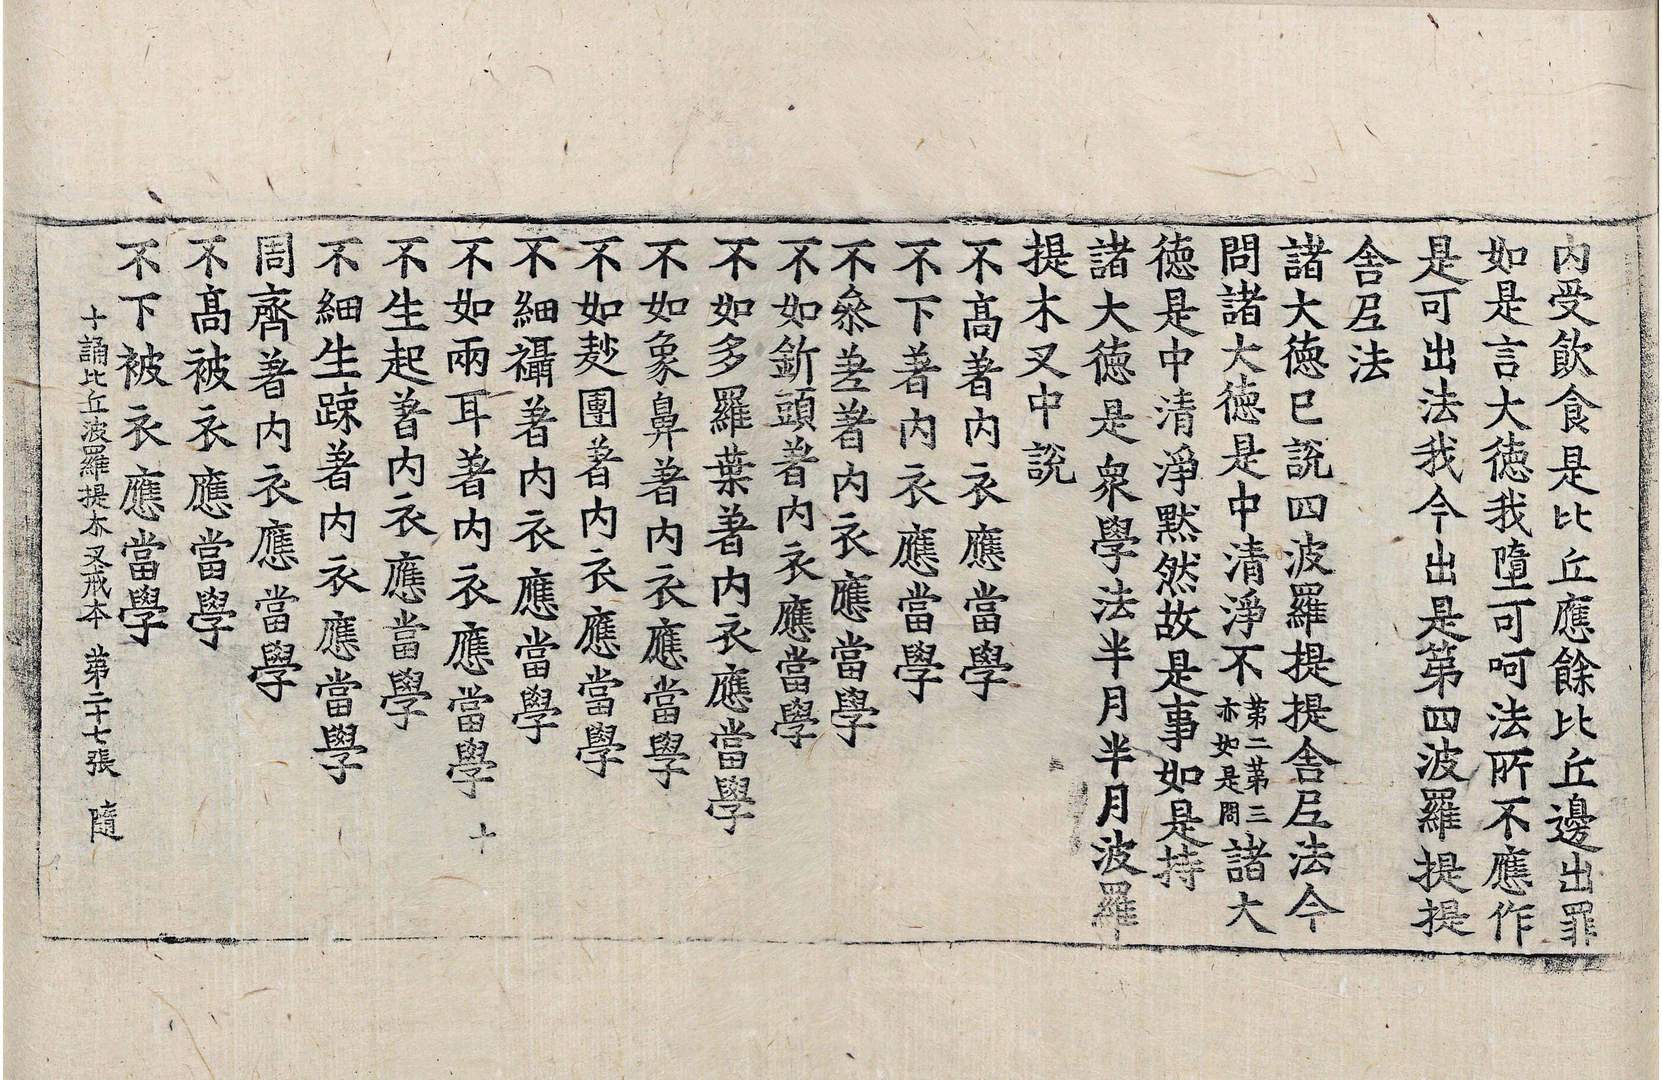 內受飮食是比丘應餘比丘邊出罪
如是言大德我墮可呵法所不應作
是可出法我今出是第四波羅提提
舍𡰱法
諸大德已說四波羅提提舍𡰱法今
問諸大德是中清淨不第二第三亦如是問諸大
德是中清淨默然故是事如是持
諸大德是衆學法半月半月波羅
提木叉中說
不高著內衣應當學
不下著內衣應當學
不叅差著內衣應當學
不如釿頭著內衣應當學
不如多羅葉著內衣應當學
不如象鼻著內衣應當學
不如麨團著內衣應當學
不細襵著內衣應當學
不如兩耳著內衣應當學 十
不生起著內衣應當學
不細生踈著內衣應當學
周齊著內衣應當學
不高被衣應當學
不下被衣應當學
十誦比丘波羅提木叉戒本 第二十七張 隨